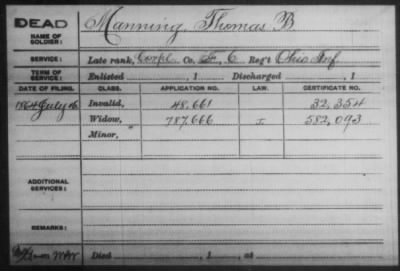 DEAD
NAME OF SOLDIER: Manning, Thomas B
SERVICE: Late rank, Corpl Co. F, 6 Reg't Ohio Inf
TERM OF SERVICE: Enlisted , 1 Discharged , 1
DATE OF FILING. CLASS. APPLICATION NO. LAW. CERTIFICATE NO.
1864 July 16 Invalid, 48,661 32,354
Widow, 787,666 I 582,093
Minor,
ADDITIONAL SERVICES:
REMARKS:
Died , 1 , at